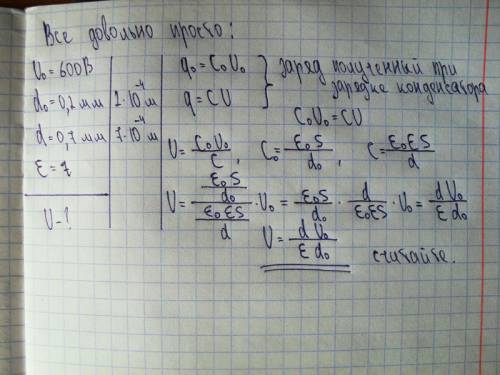 Все довольно просто:
U₀ = 600В
d₀ = 0,2 мм 2·10⁻⁴ м
d = 0,7 мм 7·10⁻⁴ м
ε = 7
U - ?
q₀ = C₀U₀
q = CU
} заряд полученный при
зарядке конденсатора
C₀U₀ = CU
U = C₀U₀/C, C₀ = ε₀S/d₀, C = ε₀εS/d
U = (ε₀S/d₀)/(ε₀εS/d) · U₀ = ε₀S/d₀ · d/ε₀εS · U₀ = dU₀/εd₀
U = dU₀/εd₀
считайте.